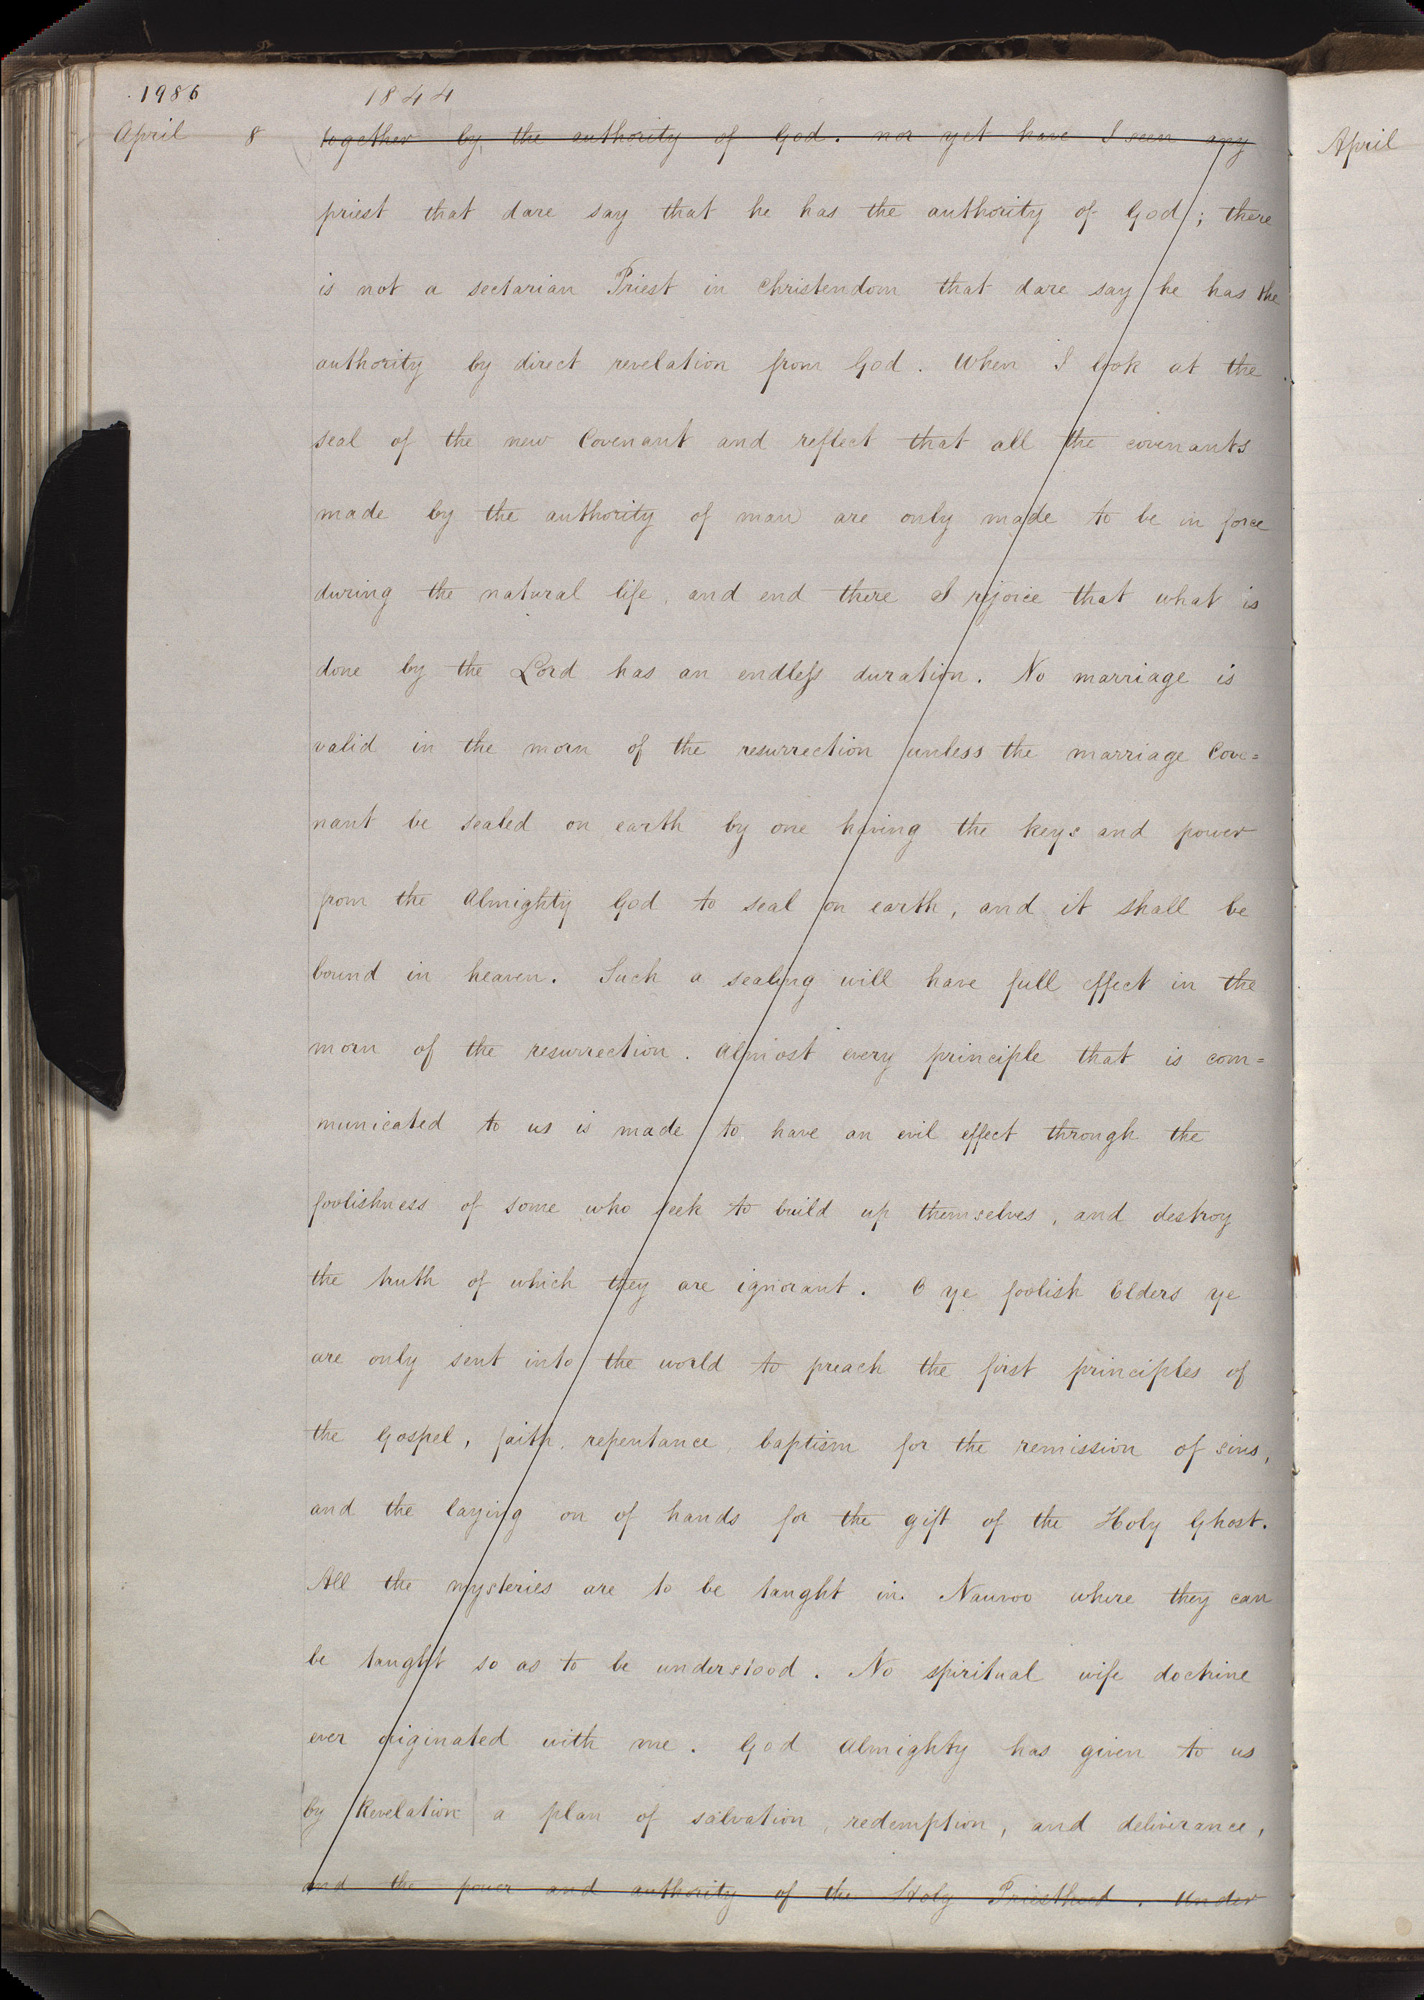 1986 1844
April 8 together by the authority of God. nor yet have I seen any
priest that dare say that he has the authority of God; there
is not a sectarian Priest in christendom that dare say he has the
authority by direct revelation from God. When I look at the
seal of the new Covenant and reflect that all the covenants
made by the authority of man are only made to be in force
during the natural life, and end there I rejoice that what is
done by the Lord has an endless duration. No marriage is
valid in the morn of the resurrection unless the marriage Cove=
nant be sealed on earth by one having the keys and power
from the Almighty God to seal on earth, and it shall be
bound in heaven. Such a sealing will have full effect in the
morn of the resurrection. Almost every principle that is com=
municated to us is made to have an evil effect through the
foolishness of some who seek to build up themselves, and destroy
the truth of which they are ignorant. O ye foolish Elders ye
are only sent into the world to preach the first principles of
the Gospel, faith, repentance, baptism for the remission of sins,
and the laying on of hands for the gift of the Holy Ghost.
All the mysteries are to be taught in Nauvoo where they can
be taught so as to be understood. No spiritual wife doctrine
ever originated with me. God Almighty has given to us
by Revelation a plan of salvation, redemption, and deliverance,
and the power and authority of the Holy Priesthood. Under
April